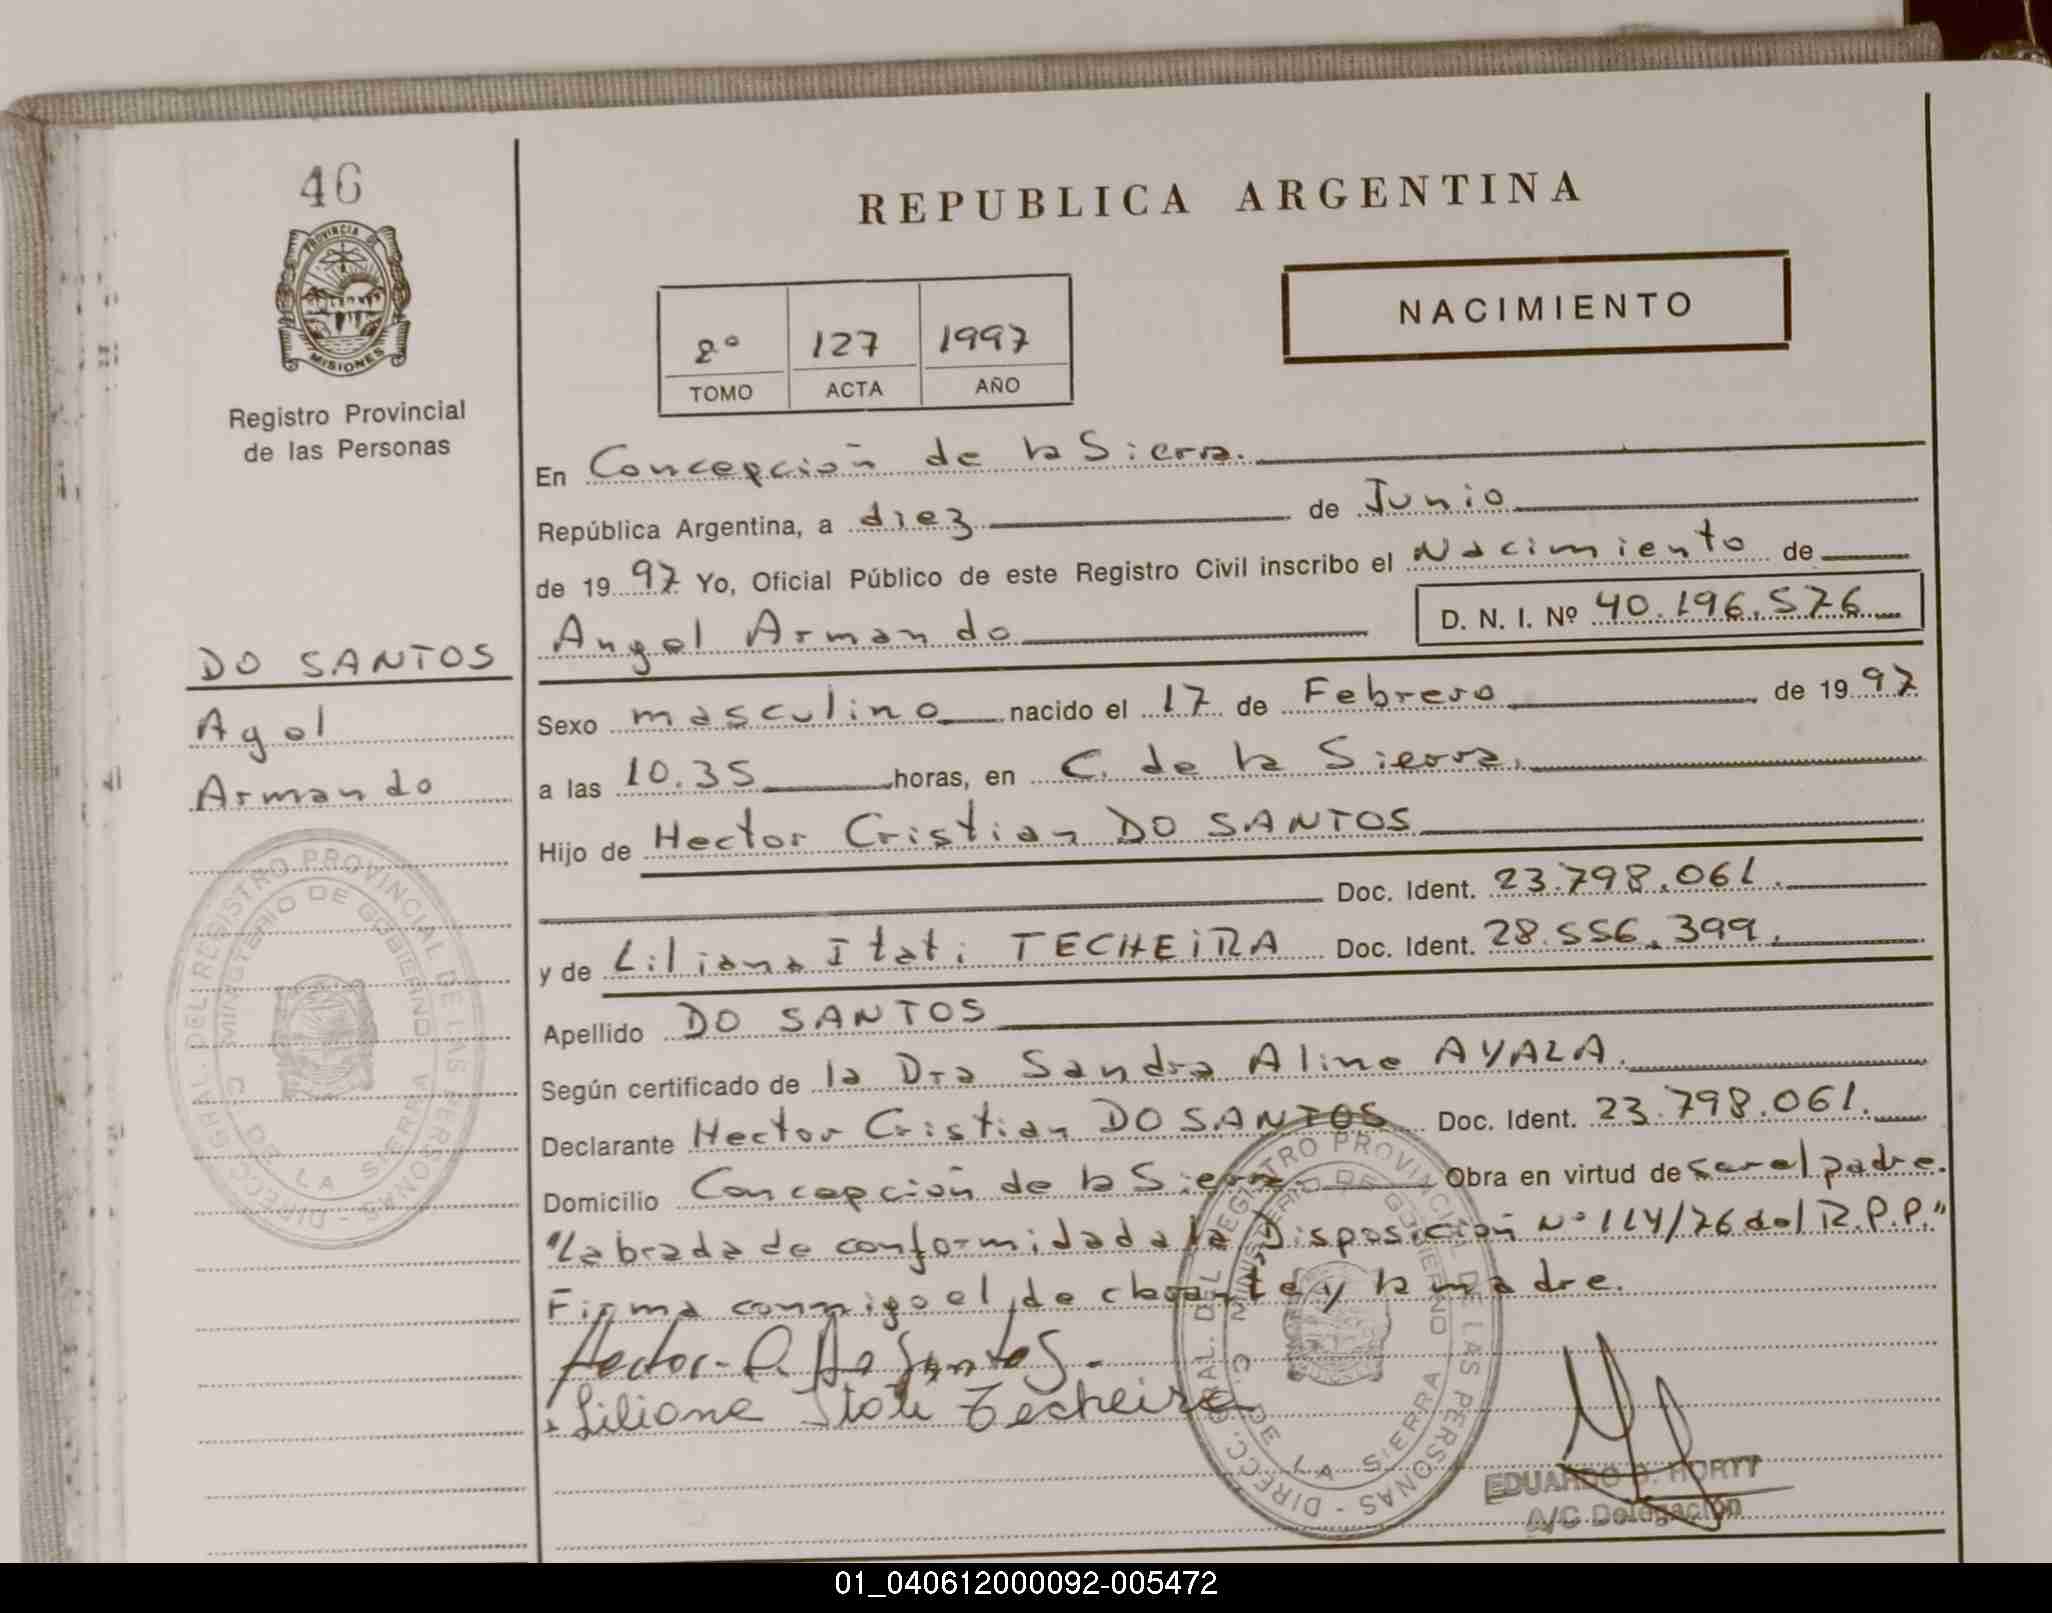 46
PROVINCIA DE
MISIONES
Registro Provincial
de las Personas
DO SANTOS
Agel
Armando
DIRECC. GRAL. DEL REGISTRO PROVINCIAL DE LAS PERSONAS -
MINISTERIO DE GOBIERNO
C. DE LA SIERRA
REPUBLICA ARGENTINA
NACIMIENTO
2º 127 1997
TOMO ACTA AÑO
En Concepción de la Sierra.
República Argentina, a diez de Junio
de 1997 Yo, Oficial Público de este Registro Civil inscribo el Nacimiento de
Angel Armando D. N. I. Nº 40.196.576
Sexo masculino nacido el 17 de Febrero de 1997
a las 10.35 horas, en C. de la Sierra.
Hijo de Hector Cristian DO SANTOS
Doc. Ident. 23.798.061.
y de Liliana Itati TECHEIRA Doc. Ident. 28.556.399.
Apellido DO SANTOS
Según certificado de la Dra Sandra Aline AYALA.
Declarante Hector Cristian DO SANTOS Doc. Ident. 23.798.061.
Domicilio Concepción de la Sierra Obra en virtud de ser el padre.
"Labrada de conformidad a la Disposición Nº 114/76 del R.P.P."
Firma conmigo el declarante y la madre.
Hector C. Do Santos.
Liliana Itati Techeira
DIRECC. GRAL. DEL REGISTRO PROVINCIAL DE LAS PERSONAS -
MINISTERIO DE GOBIERNO
C. DE LA SIERRA
EDUARDO HORTT
A/C Delegación
01_040612000092-005472